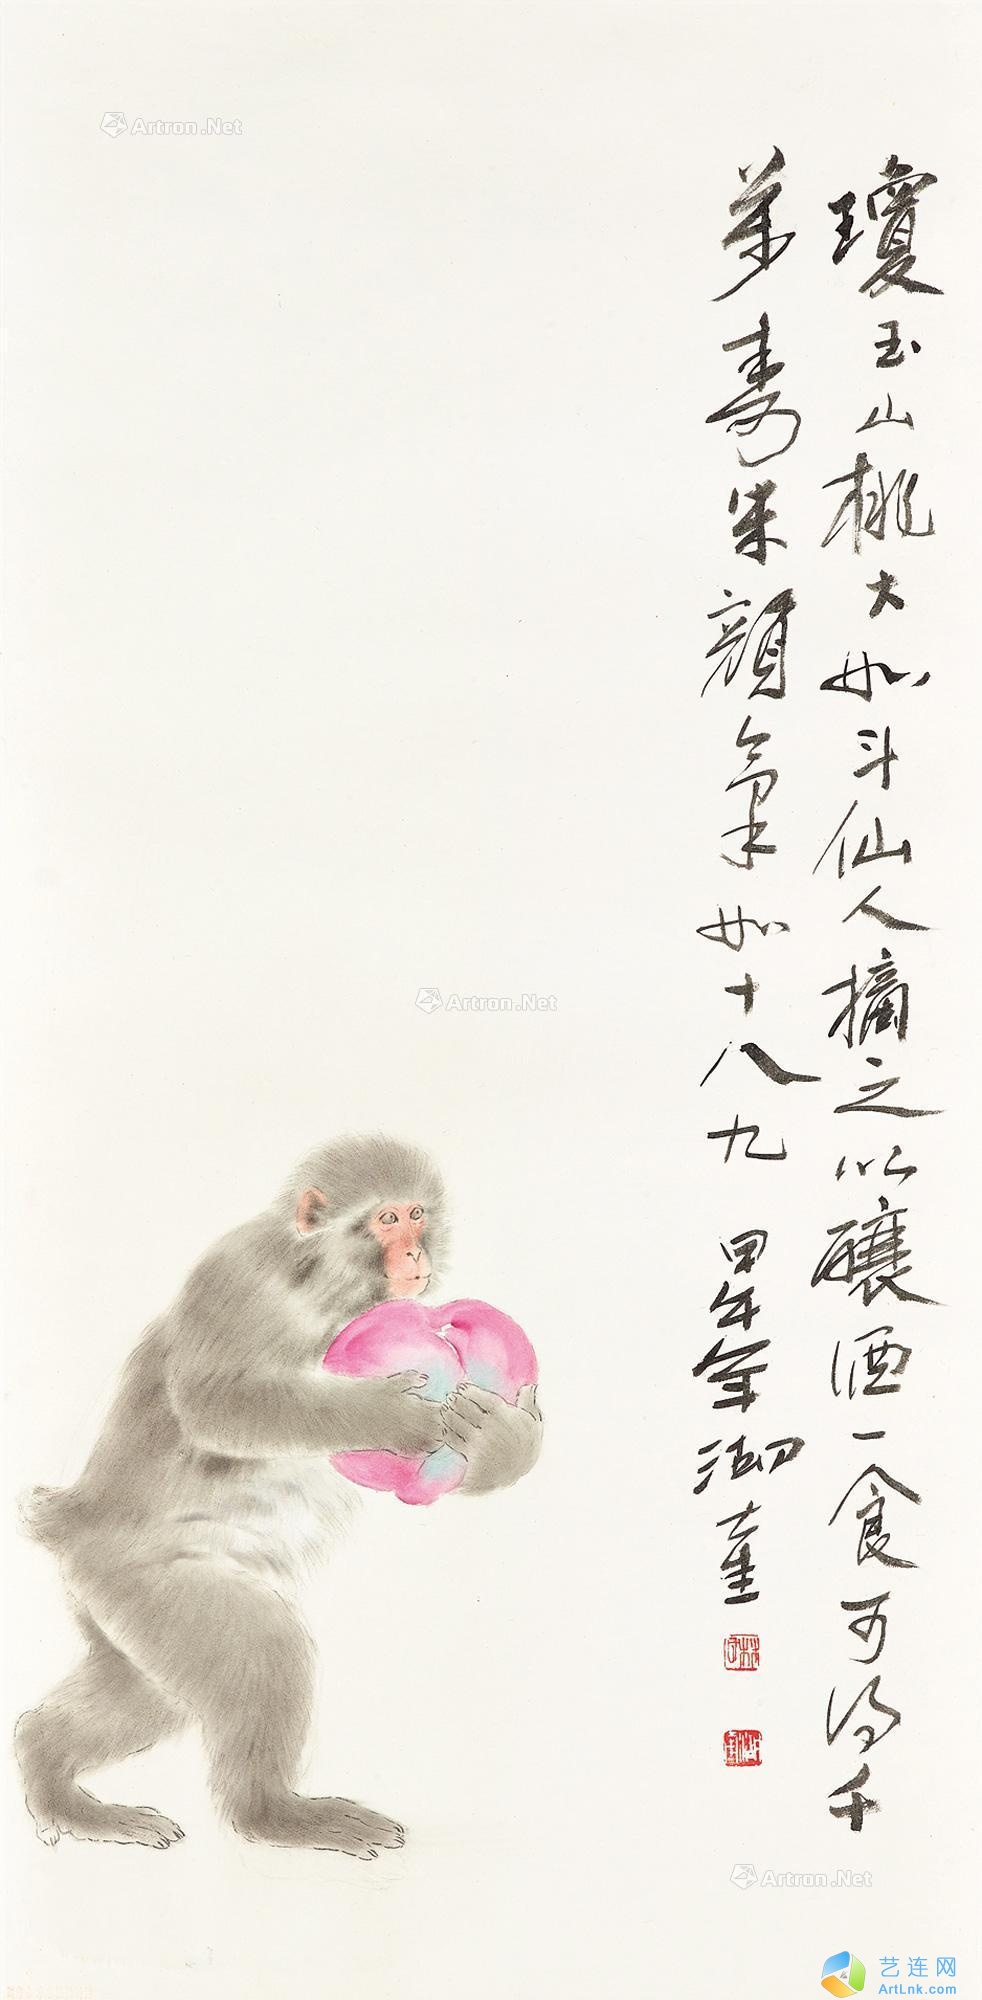 瓊玉山桃大如斗仙人摘之以釀酒一食可得千
萬壽朱顏氣如十八九
甲午年湖童
Artron.Net
Artron.Net
Artron.Net
艺连网
ArtLnk.com